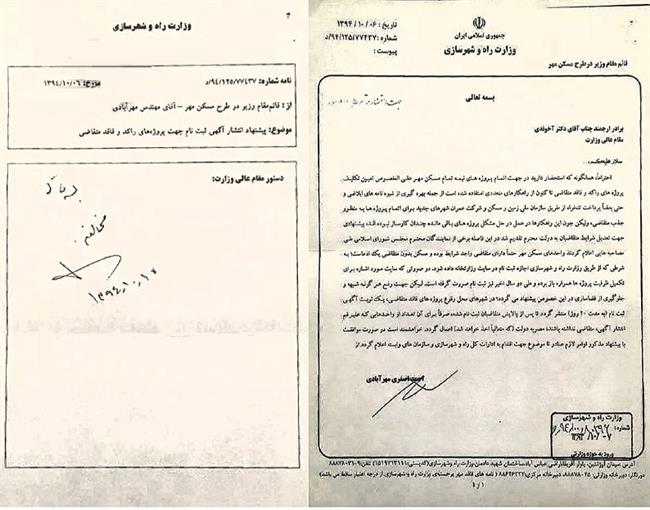 وزارت راه و شهرسازی
نامه شماره: ۹۴/۱۲۵/۷۷۴۳۷/د
مورخ: ۱۳۹۴/۱۰/۰۶
از : قائم‌مقام وزیر در طرح مسکن مهر - آقای مهندس مهرآبادی
موضوع: پیشنهاد انتشار آگهی ثبت نام جهت پروژه‌های راکد و فاقد متقاضی
دستور مقام عالی وزارت:
مخالفم
تاریخ : ۱۳۹۴/۱۰/۰۶
شماره: ۹۴/۱۲۵/۷۷۴۳۷/د
پیوست :
جمهوری اسلامی ایران
وزارت راه و شهرسازی
قائم مقام وزیر در طرح مسکن مهر
بسمه تعالی
برادر ارجمند جناب آقای دکتر آخوندی
مقام عالی وزارت
سلام علیکم،
احتراما، همانگونه که استحضار دارید در جهت اتمام پروژه های نیمه تمام مسکن مهر علی الخصوص تعیین تکلیف
پروژه های راکد و فاقد متقاضی تاکنون از راهکارهای متعددی استفاده شده است از جمله بهره گیری از شیوه نامه های ابلاغی و
حتی بعضاً پرداخت تنخواه از طریق سازمان ملی زمین و مسکن و شرکت عمران شهرهای جدید برای اتمام پروژه ها به منظور
جذب متقاضی، ولیکن چون این راهکارها در عمل در حل مشکل پروژه های باقی مانده چندان کارساز نبوده اند، پیشنهادی
جهت تعدیل شرایط متقاضیان به دولت محترم تقدیم شد در این فاصله برخی از نمایندگان محترم مجلس شورای اسلامی طی
مصاحبه هایی اعلام کردند واحدهای مسکن مهر حتماً دارای متقاضی واجد شرایط بوده و مسکن بدون متقاضی یک ادعاست؛ به
شرطی که از طریق وزارت راه و شهرسازی اجازه ثبت نام در سایت وزارتخانه داده شود. در صورتی که سایت مورد اشاره برای
تکمیل ظرفیت پروژه ها همواره باز بوده و طی دو سال اخیر نیز ثبت نام صورت گرفته است. لیکن جهت رفع هر گونه شبهه و
جلوگیری از فضاسازی در این خصوص پیشنهاد می گردد؛ در شهرهای محل وقوع پروژه های فاقد متقاضی، یک نوبت آگهی
ثبت نام (به مدت ۲۰ روز) منتشر گردد تا پس از پالایش متقاضیان ثبت نام شده صرفاً برای آن تعداد از واحدهایی که علیرغم
انتشار آگهی، متقاضی نداشته باشند؛ مصوبه دولت (که متعاقباً اخذ خواهد شد) اعمال گردد. خواهشمند است در صورت موافقت
با پیشنهاد مذکور اوامر لازم صادر تا موضوع جهت اقدام به ادارات کل راه و شهرسازی و سازمان های وابسته اعلام گردد./ز
احمد اصغری مهرآبادی
وزارت راه و شهرسازی
شماره:
ورود به حوزه وزارتی
۱ از ۱